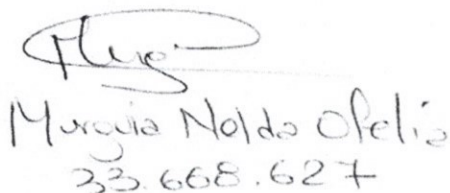 Murguia Nolda Ofelia
33.668.627